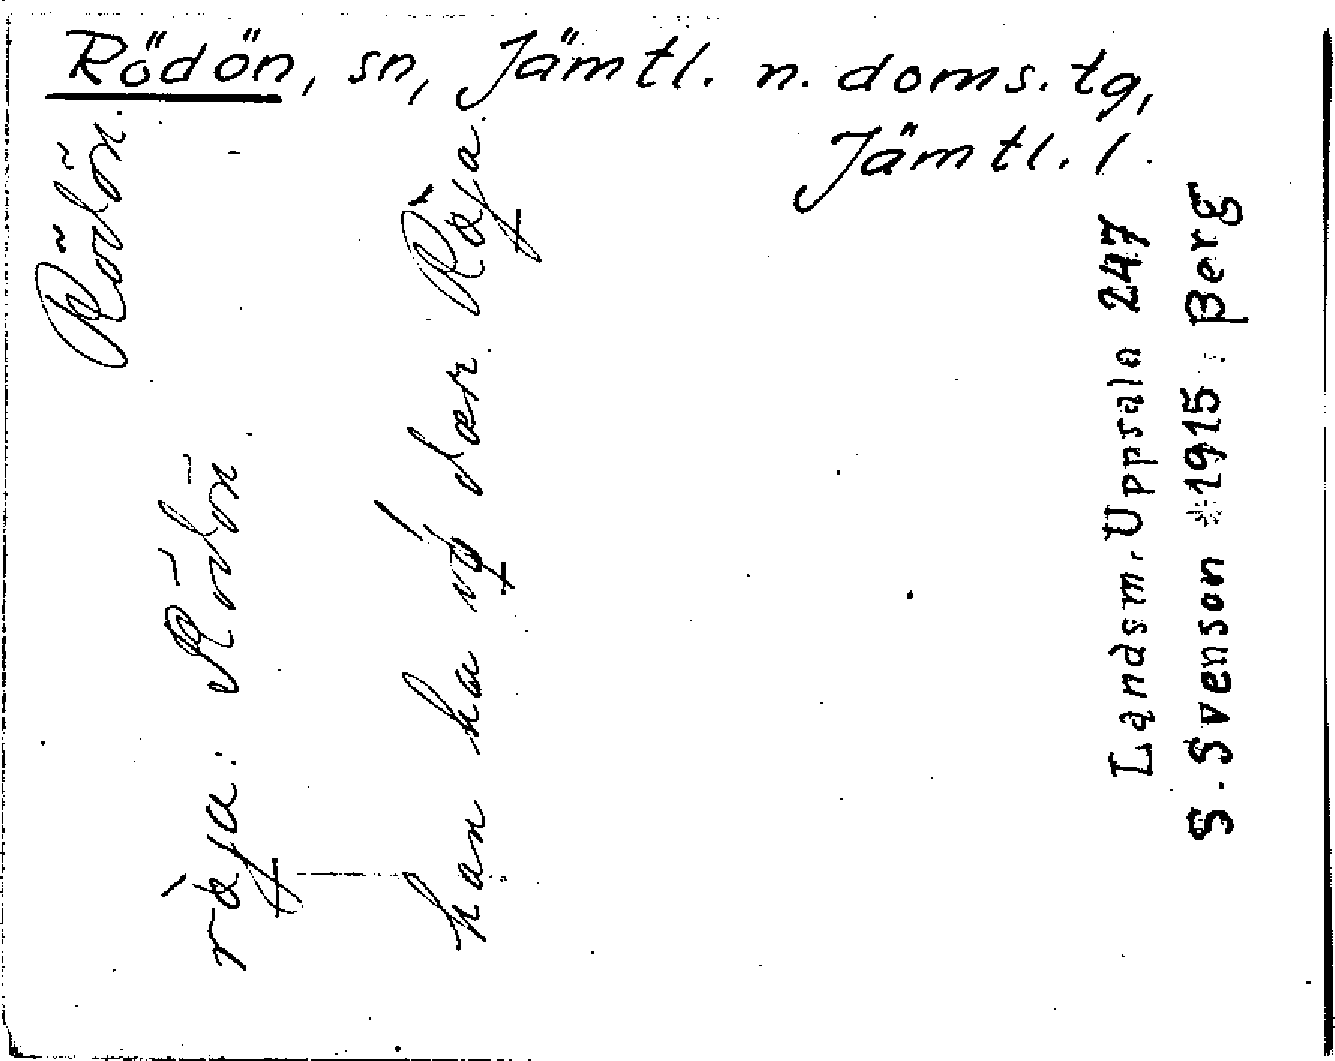 Rödön, sn, Jämtl. n. doms. tg,
Jämtl. l.
Rödön.
Rödön
han ha
Landsm. Uppsala 247
S. Svenson *1915; Berg